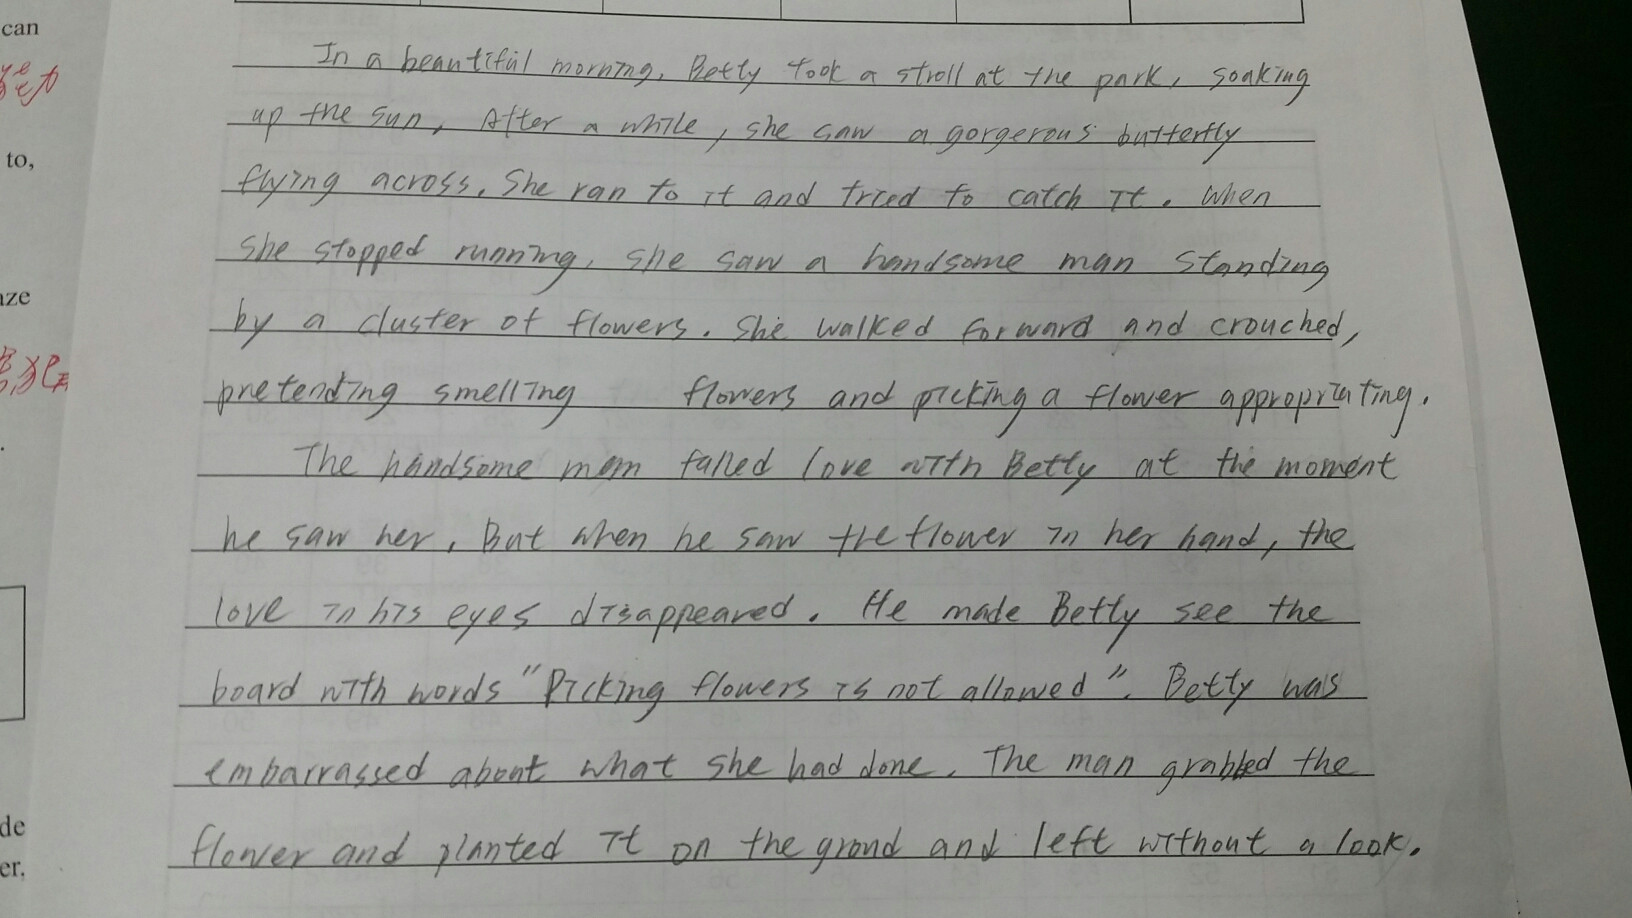 can
to,
aze
de
er,
In a beautiful morning, Betty took a stroll at the park, soaking
up the sun. After a while, she saw a gorgerous butterfly
flying across. She ran to it and tried to catch it. When
she stopped running, she saw a handsome man standing
by a cluster of flowers. She walked forward and crouched,
pretending smelling flowers and picking a flower appropriating.
The handsome man falled love with Betty at the moment
he saw her. But when he saw the flower in her hand, the
love in his eyes disappeared. He made Betty see the
board with words "Picking flowers is not allowed". Betty was
embarrassed about what she had done. The man grabbed the
flower and planted it on the grond and left without a look.